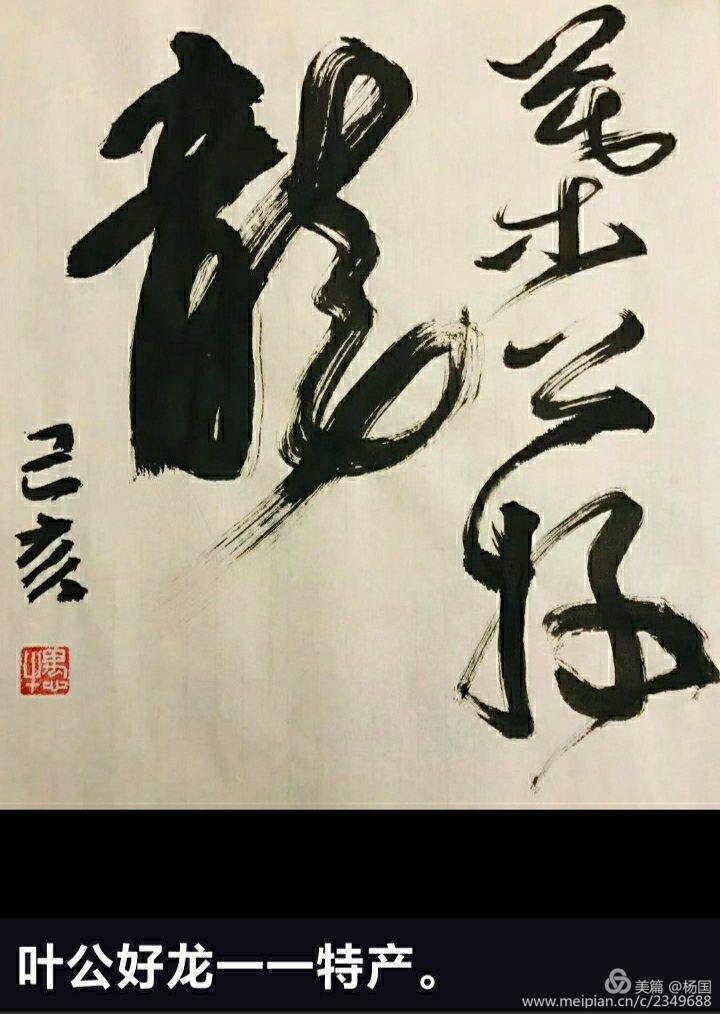 葉公好
龍
己亥
叶公好龙一一特产。
美篇 @杨国
www.meipian.cn/c/2349688